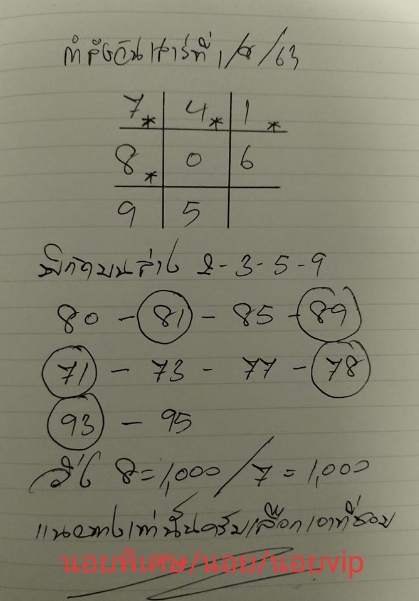 7* 4* 1*
8* 0 6
9 5
พิกัดบนล่าง 2-3-5-9
80 - 81 - 85 - 89
71 - 73 - 77 - 78
93 - 95
วิ่ง 8=1,000/7=1,000
แนวทางเท่านั้นครับเลือกเอาที่ชอบ
นอยพิเศษ/นอย/นอยvip